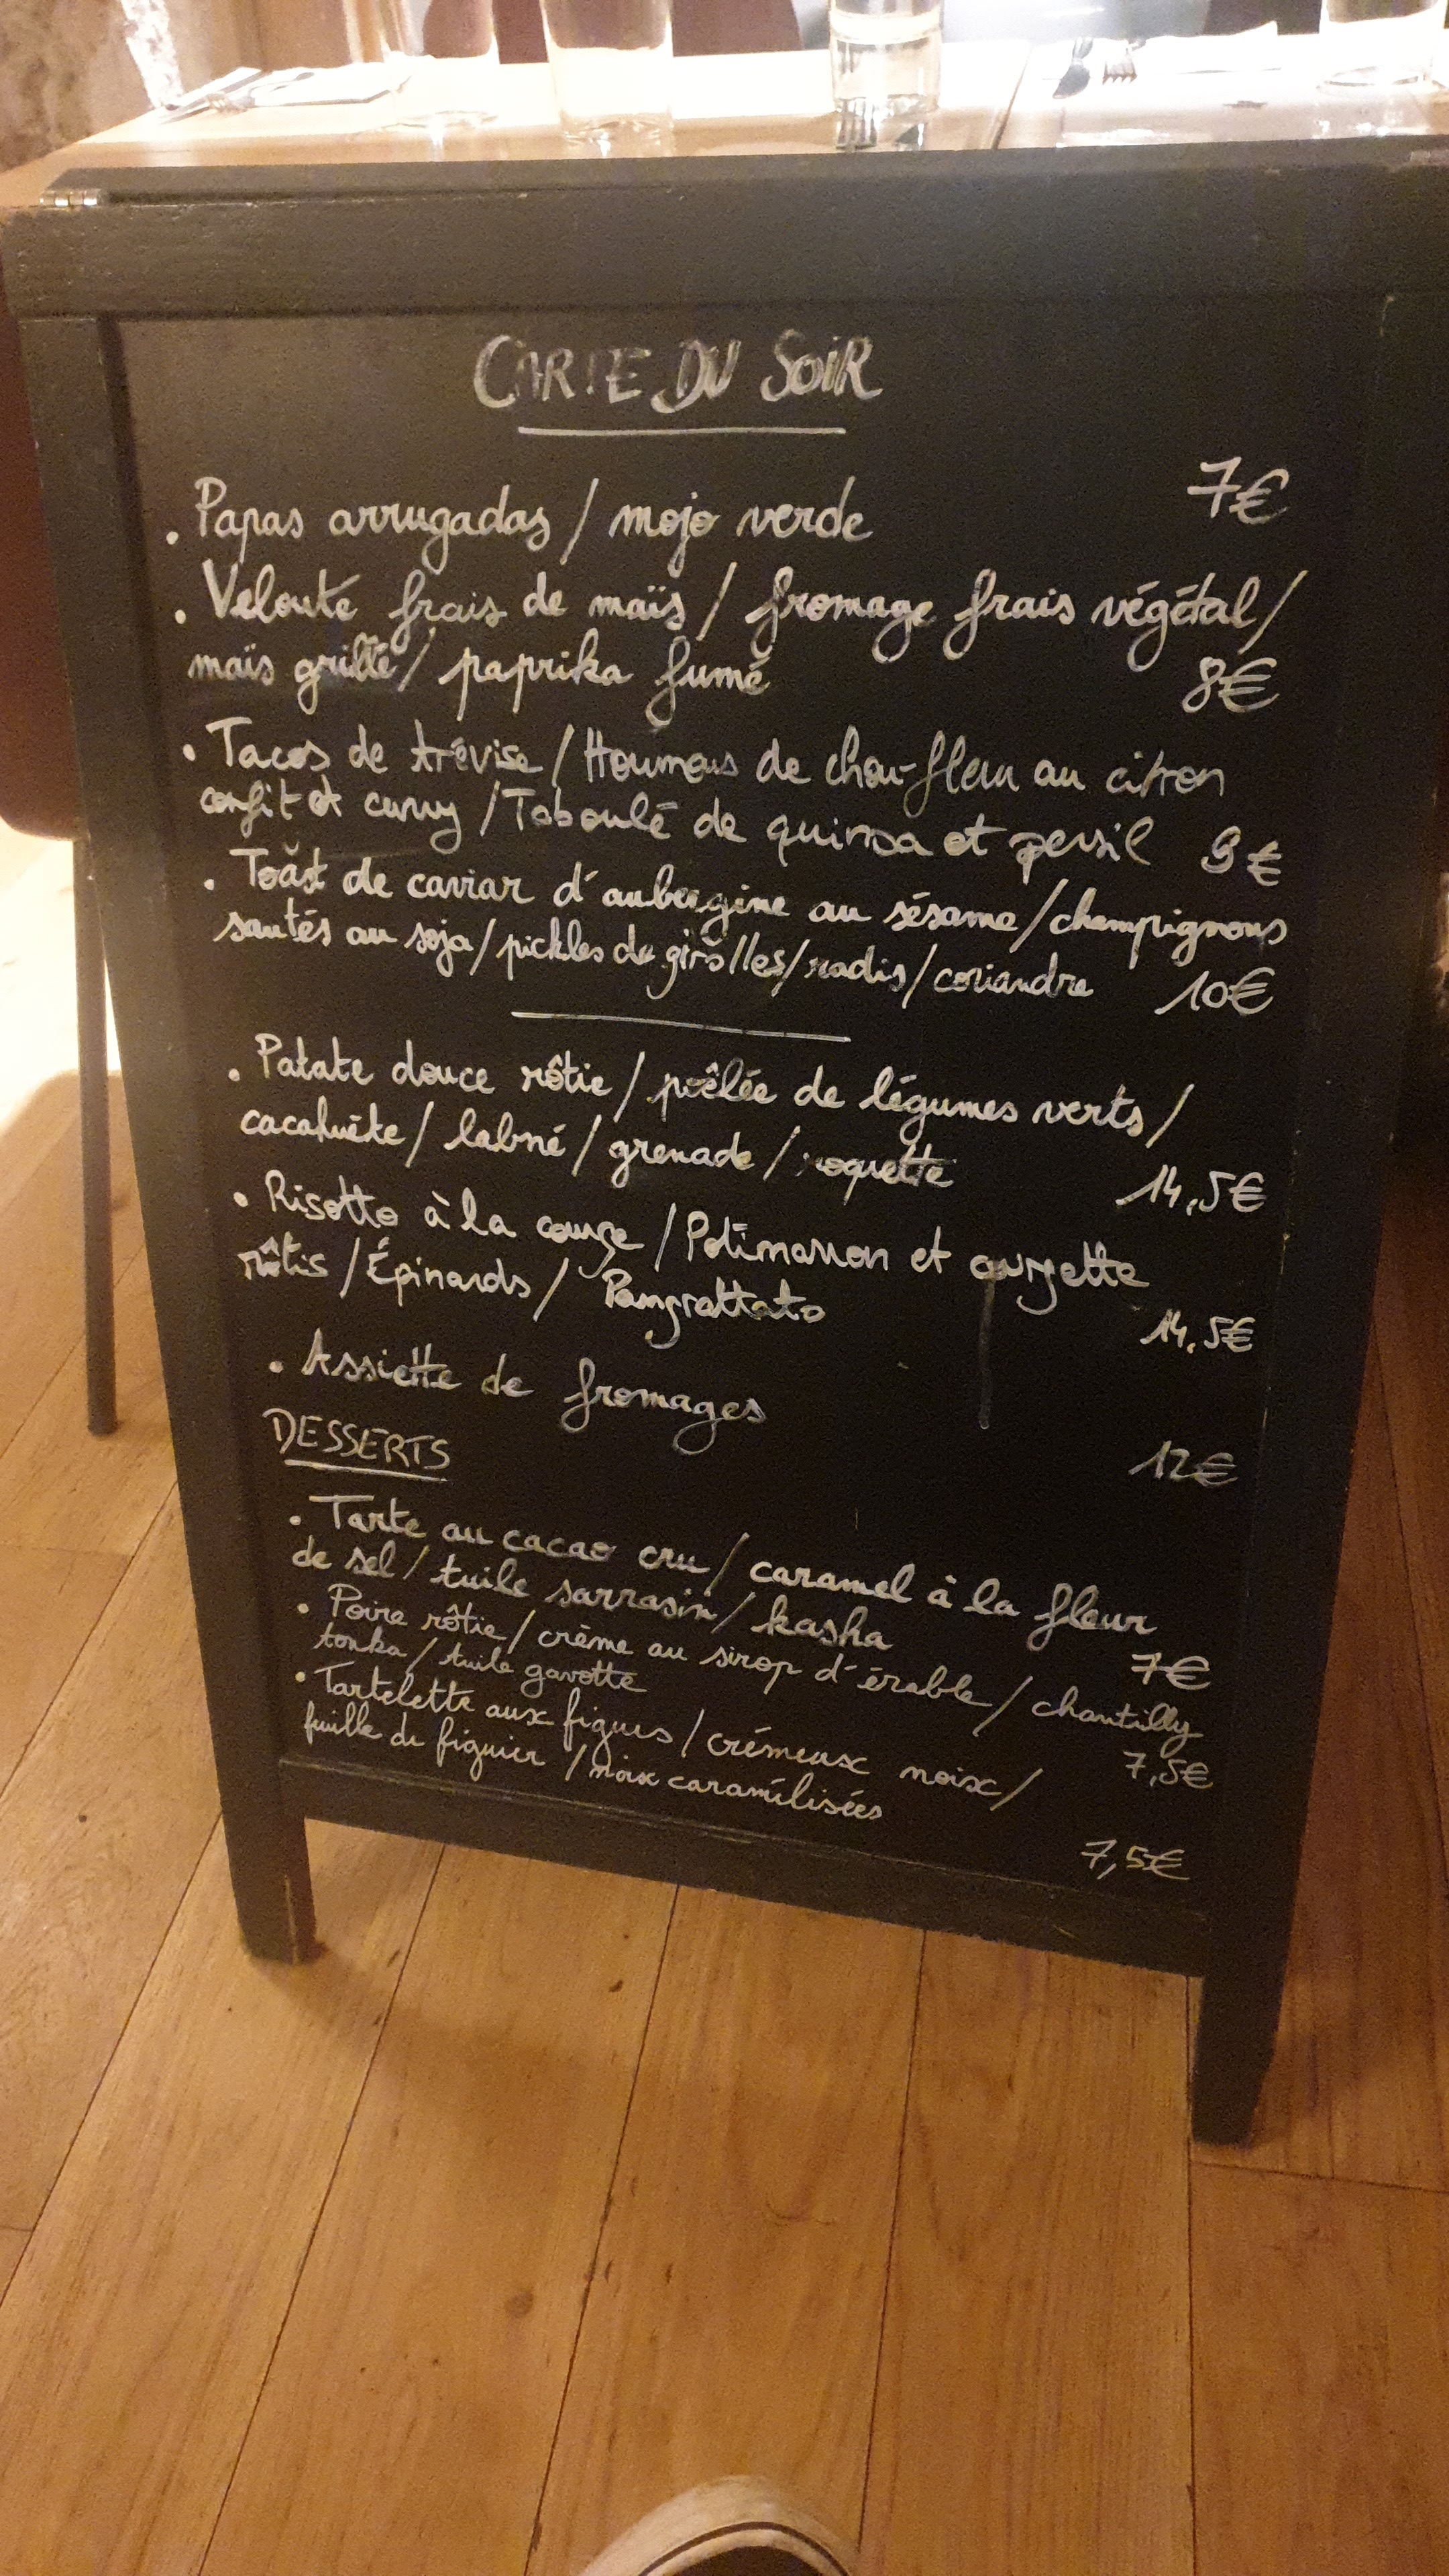 CARTE DU SOIR
. Papas arrugadas / mojo verde 7€
. Velouté frais de maïs / fromage frais végétal /
maïs grillé / paprika fumé 8€
. Tacos de trévise / Houmous de chou-fleur au citron
confit et curry / Taboulé de quinoa et persil 9€
. Toast de caviar d'aubergine au sésame / champignons
sautés au soja / pickles de girolles / radis / coriandre 10€
. Patate douce rôtie / poêlée de légumes verts /
cacahuète / labné / grenade / roquette 14,5€
. Risotto à la courge / Potimarron et courgette
rôtis / Épinards / Pangrattato 14,5€
. Assiette de fromages 12€
DESSERTS
. Tarte au cacao cru / caramel à la fleur
de sel / tuile sarrasin / kasha 7€
. Poire rôtie / crème au sirop d'érable / chantilly
tonka / tuile gavotte 7,5€
. Tartelette aux figues / crémeux noix /
feuille de figuier / noix caramélisées 7,5€